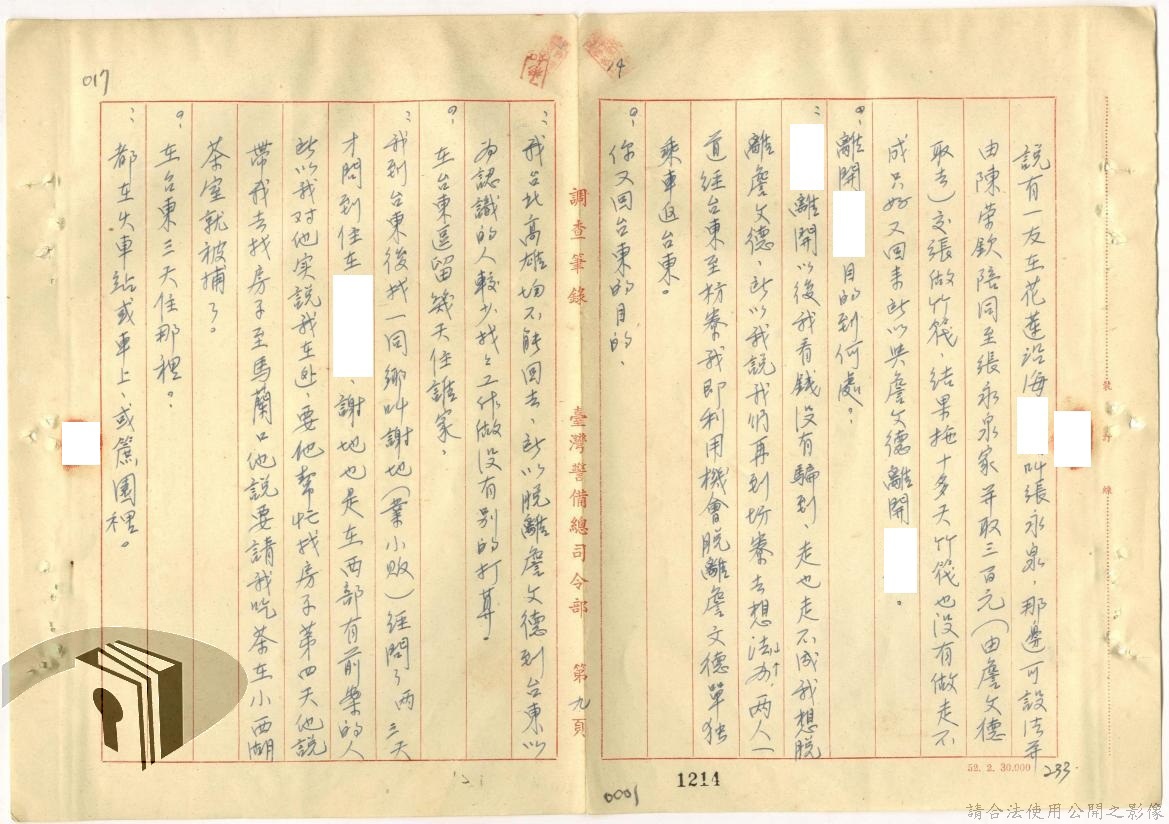 說有一友在花蓮沿海 叫張永泉,那邊可設法并
由陳榮欽陪同至張永泉家并取三百元(由詹文德
取去)交張做竹筏、結果拖十多天竹筏也沒有做走不
成只好又回來所以與詹文德離開 。
問:離開 目的到何處。
答: 離開以後我看錢沒有騙到、走也走不成我想脫
離詹文德、所以我說我們再到枋寮去想法办,两人一
道經台東至枋寮我即利用機會脫離詹文德單独
乘車返台東。
問:你又回台東的目的、
答:我台北高雄均不能回去、所以脫離詹文德到台東以
為認識的人較少找之工作做沒有別的打算
問:在台東逗留幾天住誰家、
答:我到台東後找一同鄉叫謝地(業小販)經問了两三天
才問到住在 、謝地也是在西部有前案的人
所以我对他实說我在逃、要他幫忙找房子第四天他說
帶我去找房子至馬蘭口他說要請我吃茶在小西湖
茶室就被捕了。
問:在台東三天住那裡。
答:都在火車站或車上、或蔗園裡。
調查筆錄 臺灣警備總司令部 第九頁
裝訂線
017
14
1214
0001
52. 2. 30.000
233
請合法使用公開之影像